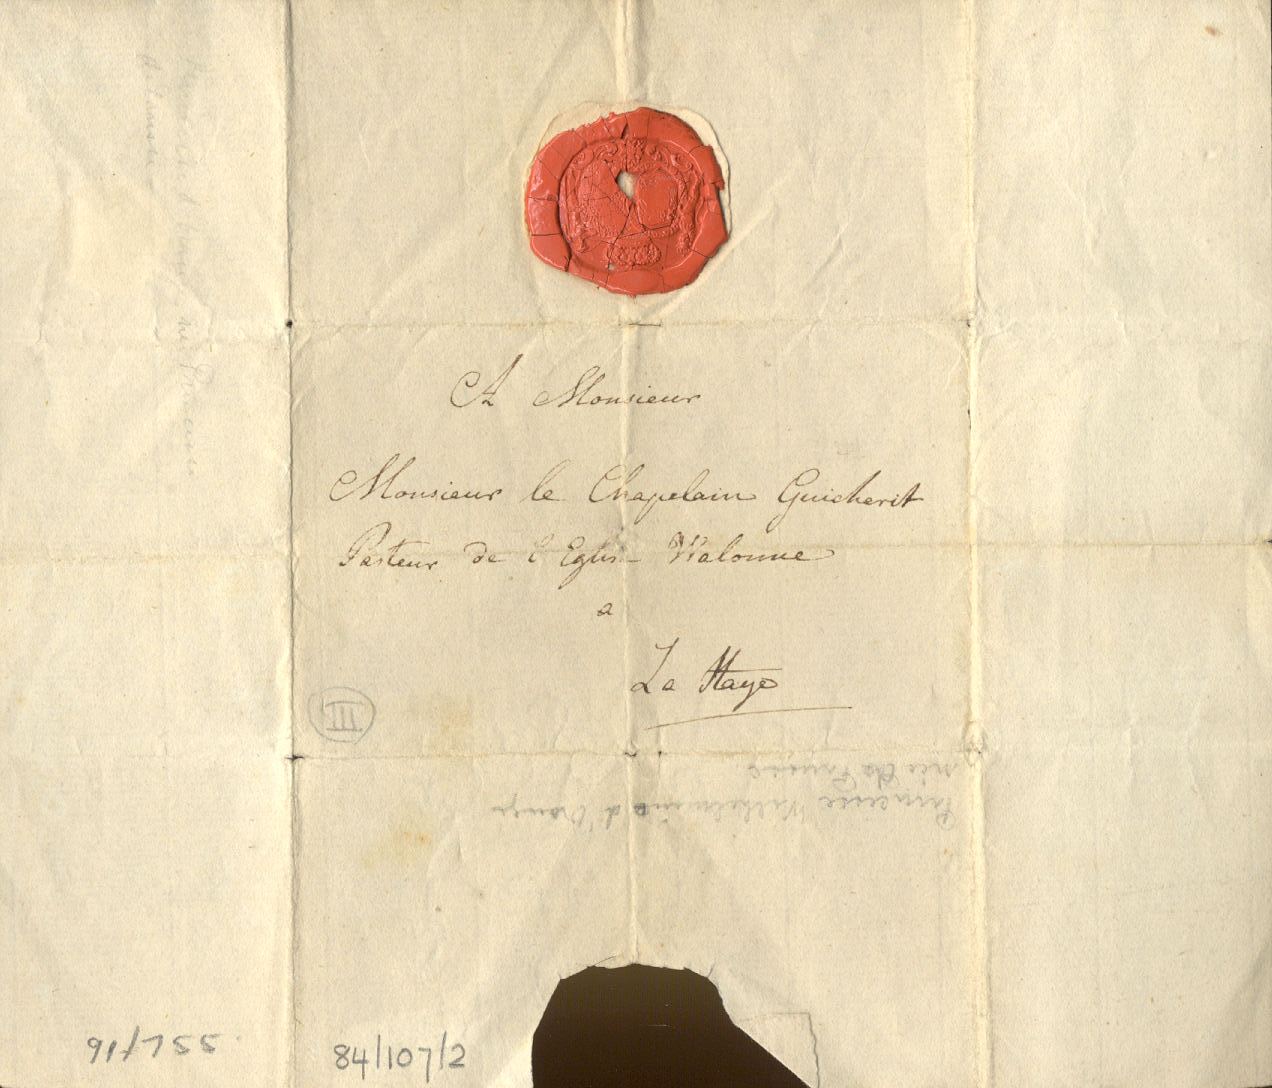 A Monsieur
Monsieur le Chapelain Guicherit
Pasteur de l'Eglise Walonne
a
La Haye
III
Princesse Wilhelmine d'Orange
née de Prusse.
91/755
84/107/2